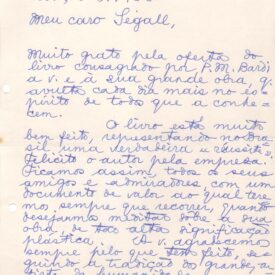 Meu caro Segall,
Muito grato pela oferta do
livro consagrado por P. M. Bardi
a v. e à sua grande obra, q.
avulta cada dia mais no es-
pírito de todos que a conhe-
cem.
O livro está muito
bem feito, representando no Bra-
sil uma verdadeira
Felicito o autor pela empresa.
Ficamos assim, todos os seus
amigos e admiradores com um
documento de valor ao qual tere-
mos, sempre que recorrer, quando
desejarmos meditar sobre a sua
obra, de tão alta significação
plástica. A v. agradecemos
sempre pelo que tem feito, se-
guindo a tradição dos grandes ar-